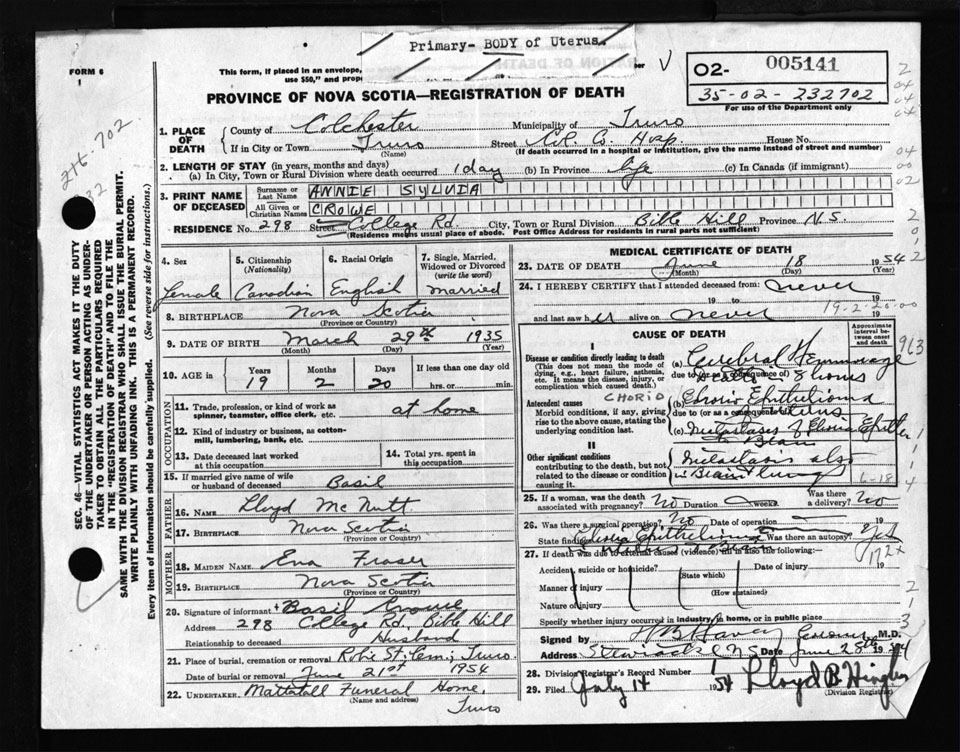 Primary- BODY of Uterus.
FORM 6
1
This form, if placed in an envelope,
use $50," and prop
02- 005141
35-02-232702
For use of the Department only
PROVINCE OF NOVA SCOTIA—REGISTRATION OF DEATH
1. PLACE OF DEATH
County of Colchester Municipality of Truro
If in City or Town Truro Street Col. C. Hosp House No.
(Name) (If death occurred in a hospital or institution, give the name instead of street and number)
2. LENGTH OF STAY (in years, months and days)
(a) In City, Town or Rural Division where death occurred 1 day (b) In Province life (c) In Canada (if immigrant)
3. PRINT NAME OF DECEASED
Surname or Last Name ANNIE SYLVIA
All Given or Christian Names CROWE
RESIDENCE No. 298 Street College Rd. City, Town or Rural Division Bible Hill Province N.S.
(Residence means usual place of abode. Post Office Address for residents in rural parts not sufficient)
4. Sex
Female
5. Citizenship
(Nationality)
Canadian
6. Racial Origin
English
7. Single, Married, Widowed or Divorced
(write the word)
married
8. BIRTHPLACE Nova Scotia
(Province or Country)
9. DATE OF BIRTH March 29th 1935
(Month) (Day) (Year)
10. AGE in
Years Months Days If less than one day old
19 2 20 hrs. or min.
OCCUPATION
11. Trade, profession, or kind of work as spinner, teamster, office clerk, etc. at home
12. Kind of industry or business, as cotton-mill, lumbering, bank, etc.
13. Date deceased last worked at this occupation
14. Total yrs. spent in this occupation
15. If married give name of wife or husband of deceased Basil
FATHER
16. NAME Lloyd McNutt
17. BIRTHPLACE Nova Scotia
(Province or Country)
MOTHER
18. MAIDEN NAME Eva Fraser
19. BIRTHPLACE Nova Scotia
(Province or Country)
20. Signature of informant Basil Crowe
Address 298 College Rd, Bible Hill
Relationship to deceased Husband
21. Place of burial, cremation or removal Robie St. Cem; Truro.
Date of burial or removal June 21st 1954
22. UNDERTAKER Mattatall Funeral Home,
(Name and address) Truro
MEDICAL CERTIFICATE OF DEATH
23. DATE OF DEATH June 18 1954
(Month) (Day) (Year)
24. I HEREBY CERTIFY that I attended deceased from: never
19 to 19
and last saw her alive on never 19
19-2-20-00
CAUSE OF DEATH
Approximate interval between onset and death
I
Disease or condition directly leading to death
(This does not mean the mode of dying, e.g., heart failure, asthenia, etc. It means the disease, injury, or complication which caused death.)
(a) Cerebral Hemmorage
due to (or as a consequence of)
Death in 8 hours
Antecedent causes CHORIO
Morbid conditions, if any, giving rise to the above cause, stating the underlying condition last.
(b) Chorio Epithelioma
due to (or as a consequence of)
of uterus
(c) Metastases of Chorio Epithel
to Brain
II
Other significant conditions
contributing to the death, but not related to the disease or condition causing it.
Metastasis also
in Brain & lung
6-18
25. If a woman, was the death associated with pregnancy? No Duration weeks Was there a delivery? No
26. Was there a surgical operation? No Date of operation 19
State findings Chorio Epithelioma Was there an autopsy? Yes
27. If death was due to external causes (violence) fill in also the following:—
172x
Accident, suicide or homicide? Date of injury 19
(State which)
Manner of injury
(How sustained)
Nature of injury
Specify whether injury occurred in industry, in home, or in public place
Signed by M.D.
Address Stewiacke N.S. Date June 28th 1954
28. Division Registrar's Record Number
29. Filed July 14 1954 Lloyd B
(Division Registrar)
SEC. 46—VITAL STATISTICS ACT MAKES IT THE DUTY
OF THE UNDERTAKER OR PERSON ACTING AS UNDER-
TAKER TO OBTAIN ALL THE PARTICULARS REQUIRED
IN THE "REGISTRATION OF DEATH" AND TO FILE THE
SAME WITH THE DIVISION REGISTRAR WHO SHALL ISSUE THE BURIAL PERMIT.
WRITE PLAINLY WITH UNFADING INK. THIS IS A PERMANENT RECORD.
Every item of information should be carefully supplied. (See reverse side for instructions.)